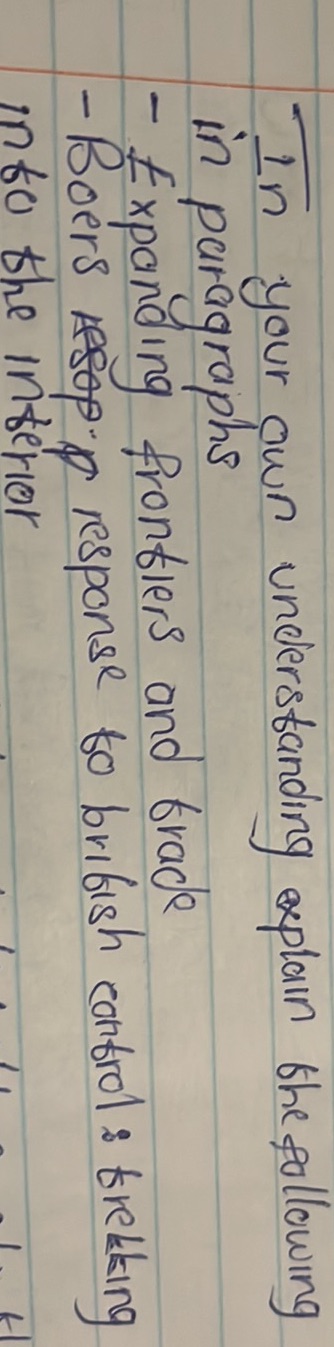 In your own understanding explain the following
in paragraphs
- Expanding frontiers and trade
- Boers response to british control : trekking
into the interior